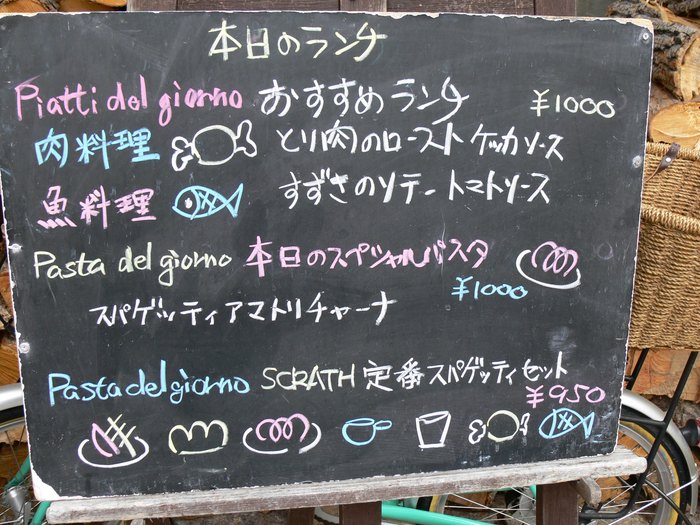 本日のランチ
Piatti del giorno おすすめランチ ¥1000
肉料理 とり肉のロースト ケッカソース
魚料理 すずきのソテー トマトソース
Pasta del giorno 本日のスペシャルパスタ
¥1000
スパゲッティアマトリチャーナ
Pasta del giorno SCRATH 定番スパゲッティセット
¥950